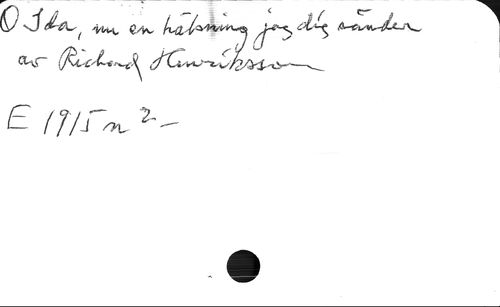 O Ida, nu en hälsning jag dig sänder
av Richard Henriksson
E 1915 n 2 –